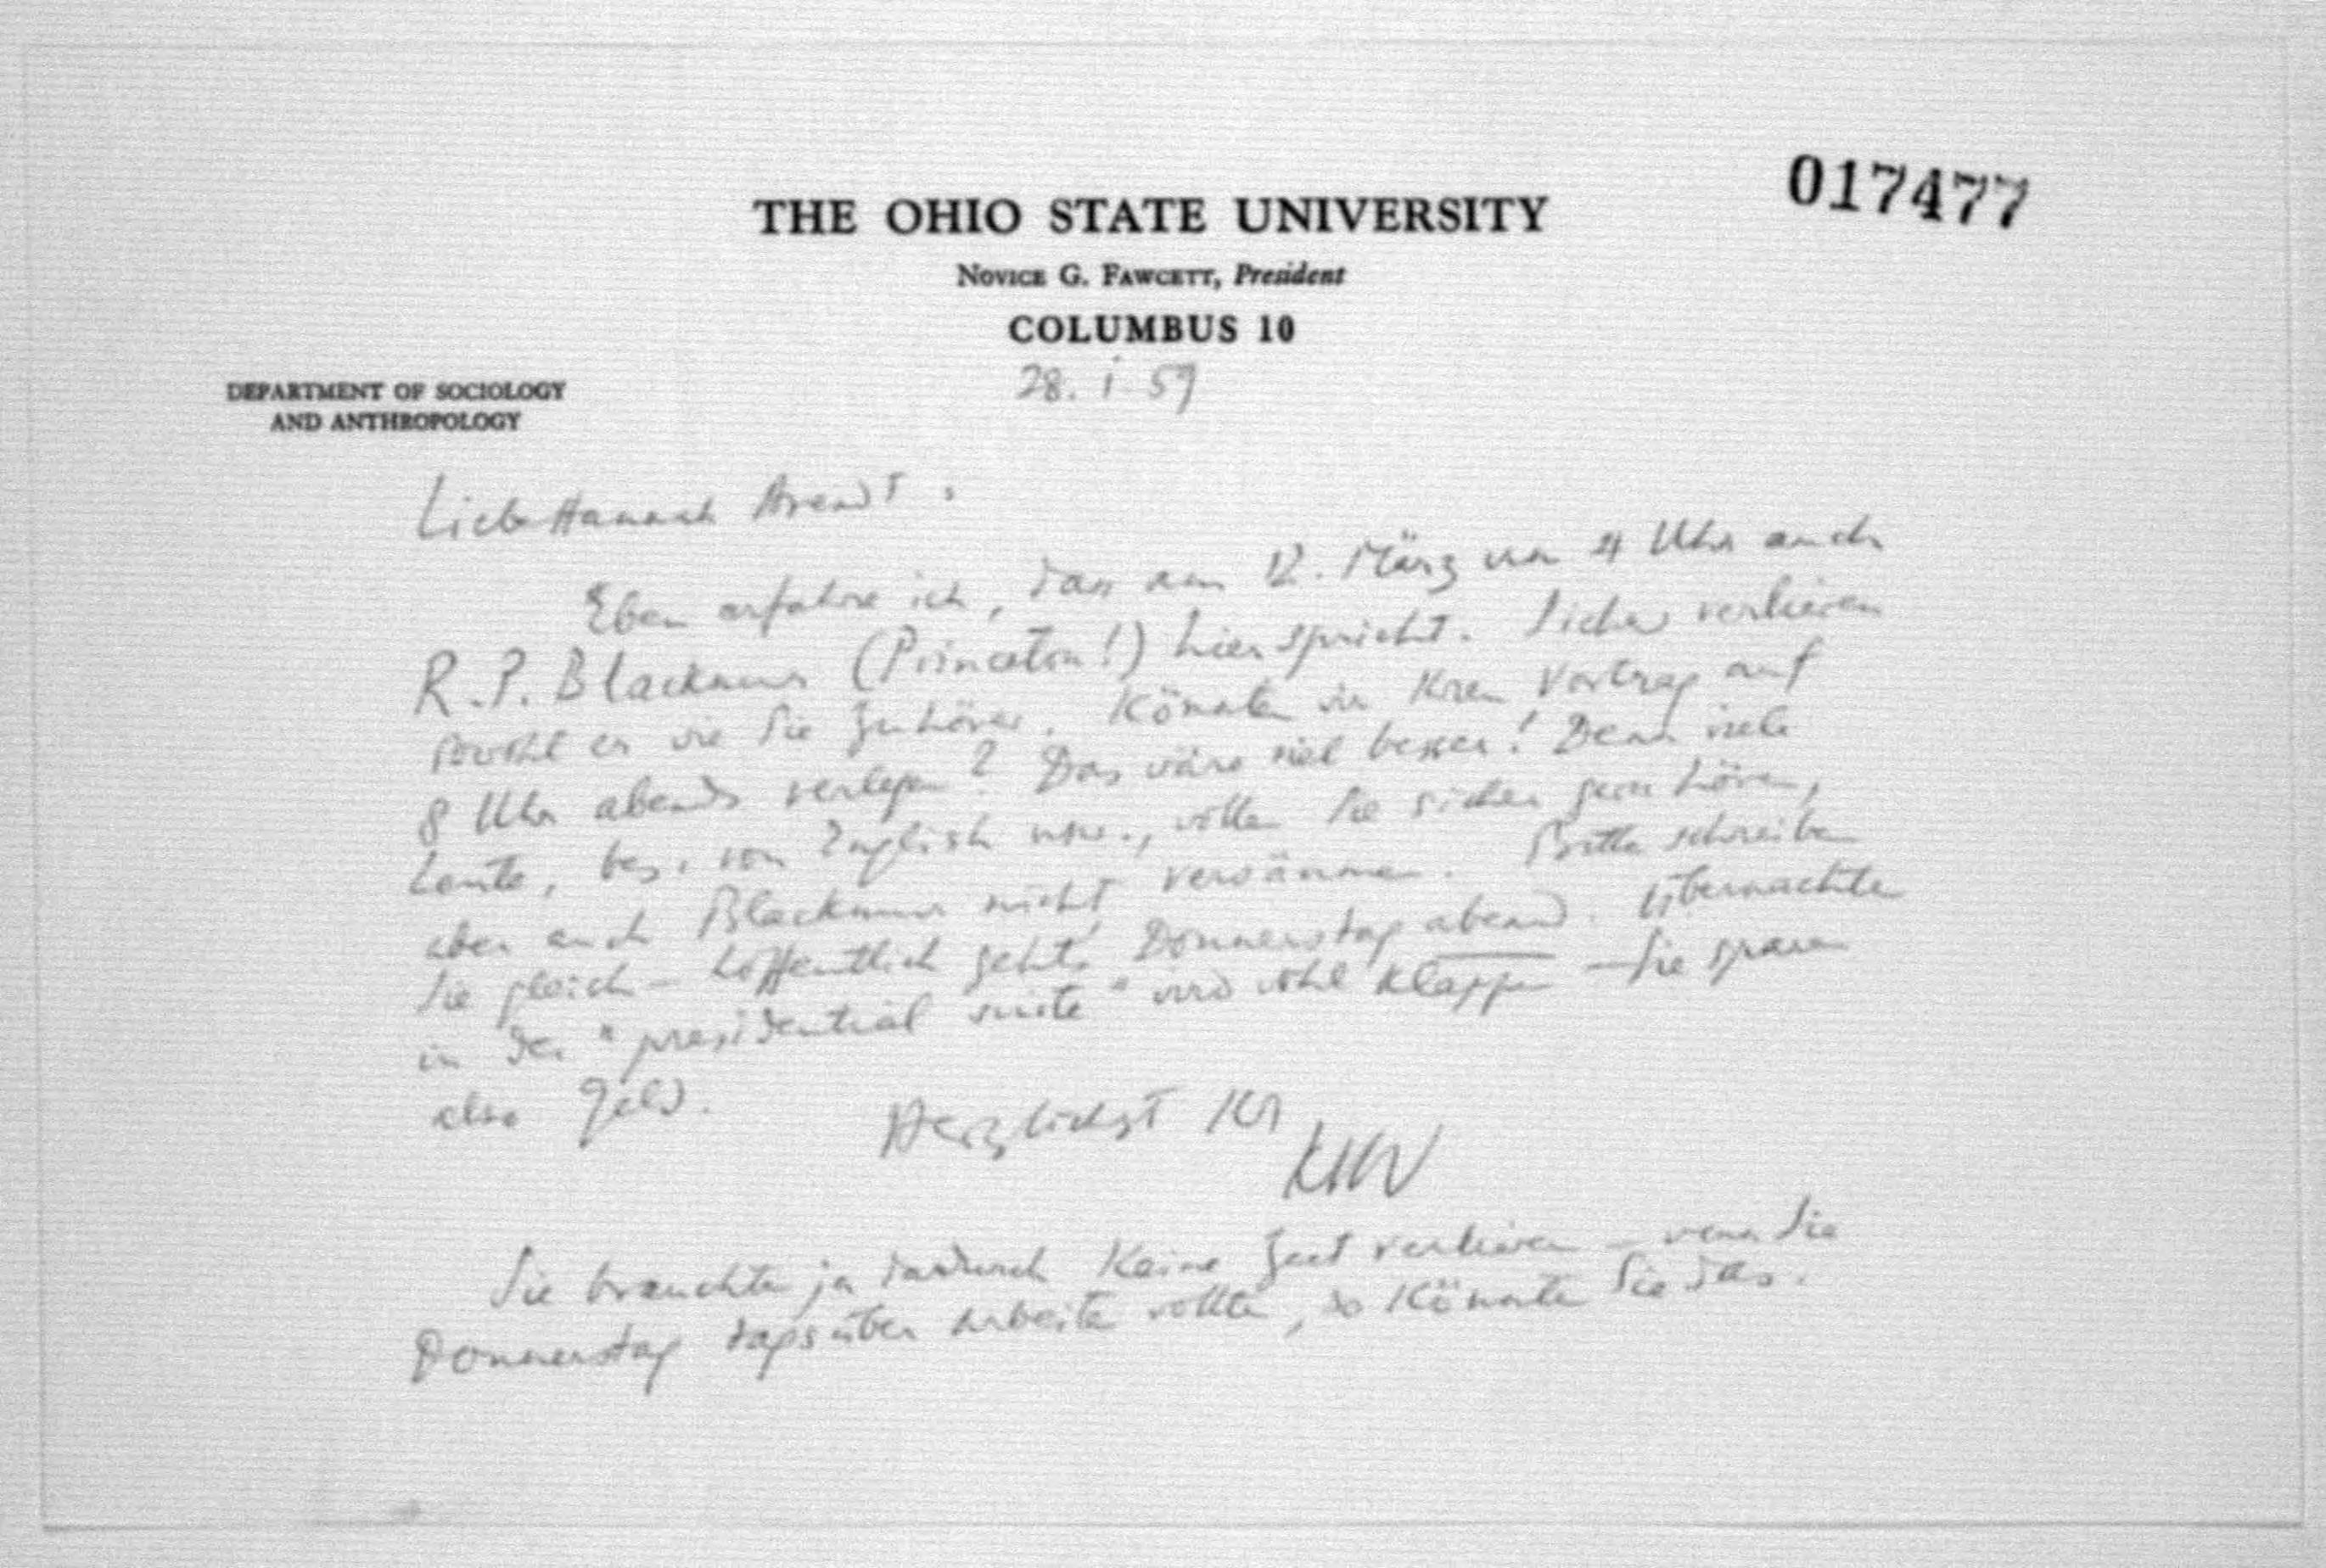 017477
THE OHIO STATE UNIVERSITY
NOVICE G. FAWCETT, President
COLUMBUS 10
28. i 59
DEPARTMENT OF SOCIOLOGY
AND ANTHROPOLOGY
Liebe Hannah Arendt,
Eben erfahre ich, dass am 12. März um 4 Uhr auch
R.P. Blackmur (Princeton!) hier spricht. Sicher verlieren
sowohl er wie Sie Zuhörer. Könnten wir Ihren Vortrag auf
8 Uhr abends verlegen? Das wäre viel besser! Denn viele
Leute, bes. von English usw., wollen Sie sicher gern hören,
aber auch Blackmur nicht versäumen. Bitte schreiben
Sie gleich – hoffentlich gehts Donnerstag abend. Übernachten
in der "presidential suite" wird wohl klappen – Sie sparen
also Geld.
Herzlichst Ihr
KHW
Sie brauchten ja dadurch keine Zeit verlieren – wenn Sie
Donnerstag tagsüber arbeiten wollten, so könnten Sie das.